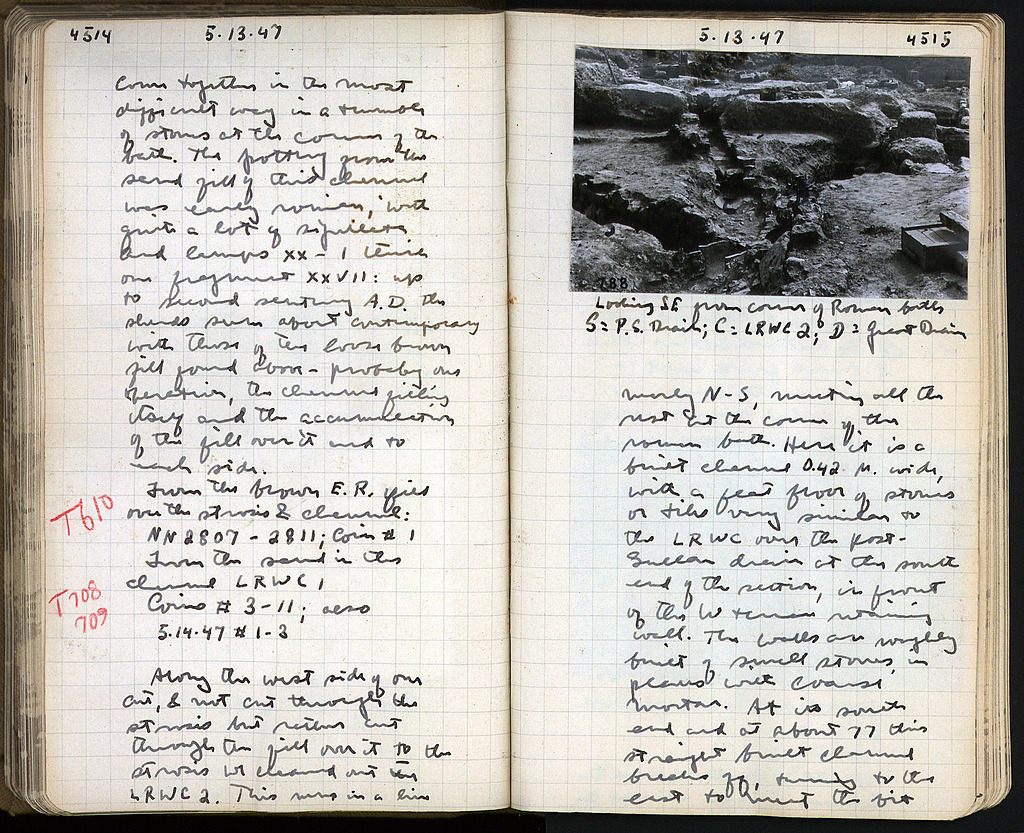 4514 5.13.47
come together in the most
difficult way in a tumble
of stones at the corner of the
bath. The pottery from the
sand fill of this channel
was early roman, with
quite a lot of sigillata
and lamps XX - 1 tenir
one fragment XXVII: up
to second century A.D. the
sherds seem about contemporary
with those of the loose brown
fill found above - probably one
operation, the channel filling
itself and the accumulation
of the fill over it and to
each side.
From the brown E.R. fill
over the strosis & channel:
T610
NN 2807 - 2811; Coin # 1
From the sand in the
channel LRWC 1
T708
709
Coins # 3-11; also
5.14.47 # 1-3
Along the west side of our
cut, & not cut through the
strosis but rather cut
through the fill over it to the
strosis we cleaned out the
LRWC 2. This runs in a line
5.13.47 4515
788
Looking SE from corner of Roman bath
S = P.S. Drain; C = LRWC 2; D = Great Drain
nearly N-S, meeting all the
rest at the corner of the
roman bath. Here it is a
built channel 0.42 M. wide,
with a flat floor of stones
or tiles very similar to
the LRWC over the post-
Sullan drain at the south
end of the section, in front
of the W terrace retaining
wall. The walls are roughly
built of small stones, in
places with coarse
mortar. At its south
end and at about 77 this
straight built channel
breaks off, turning to the
east to meet the bit